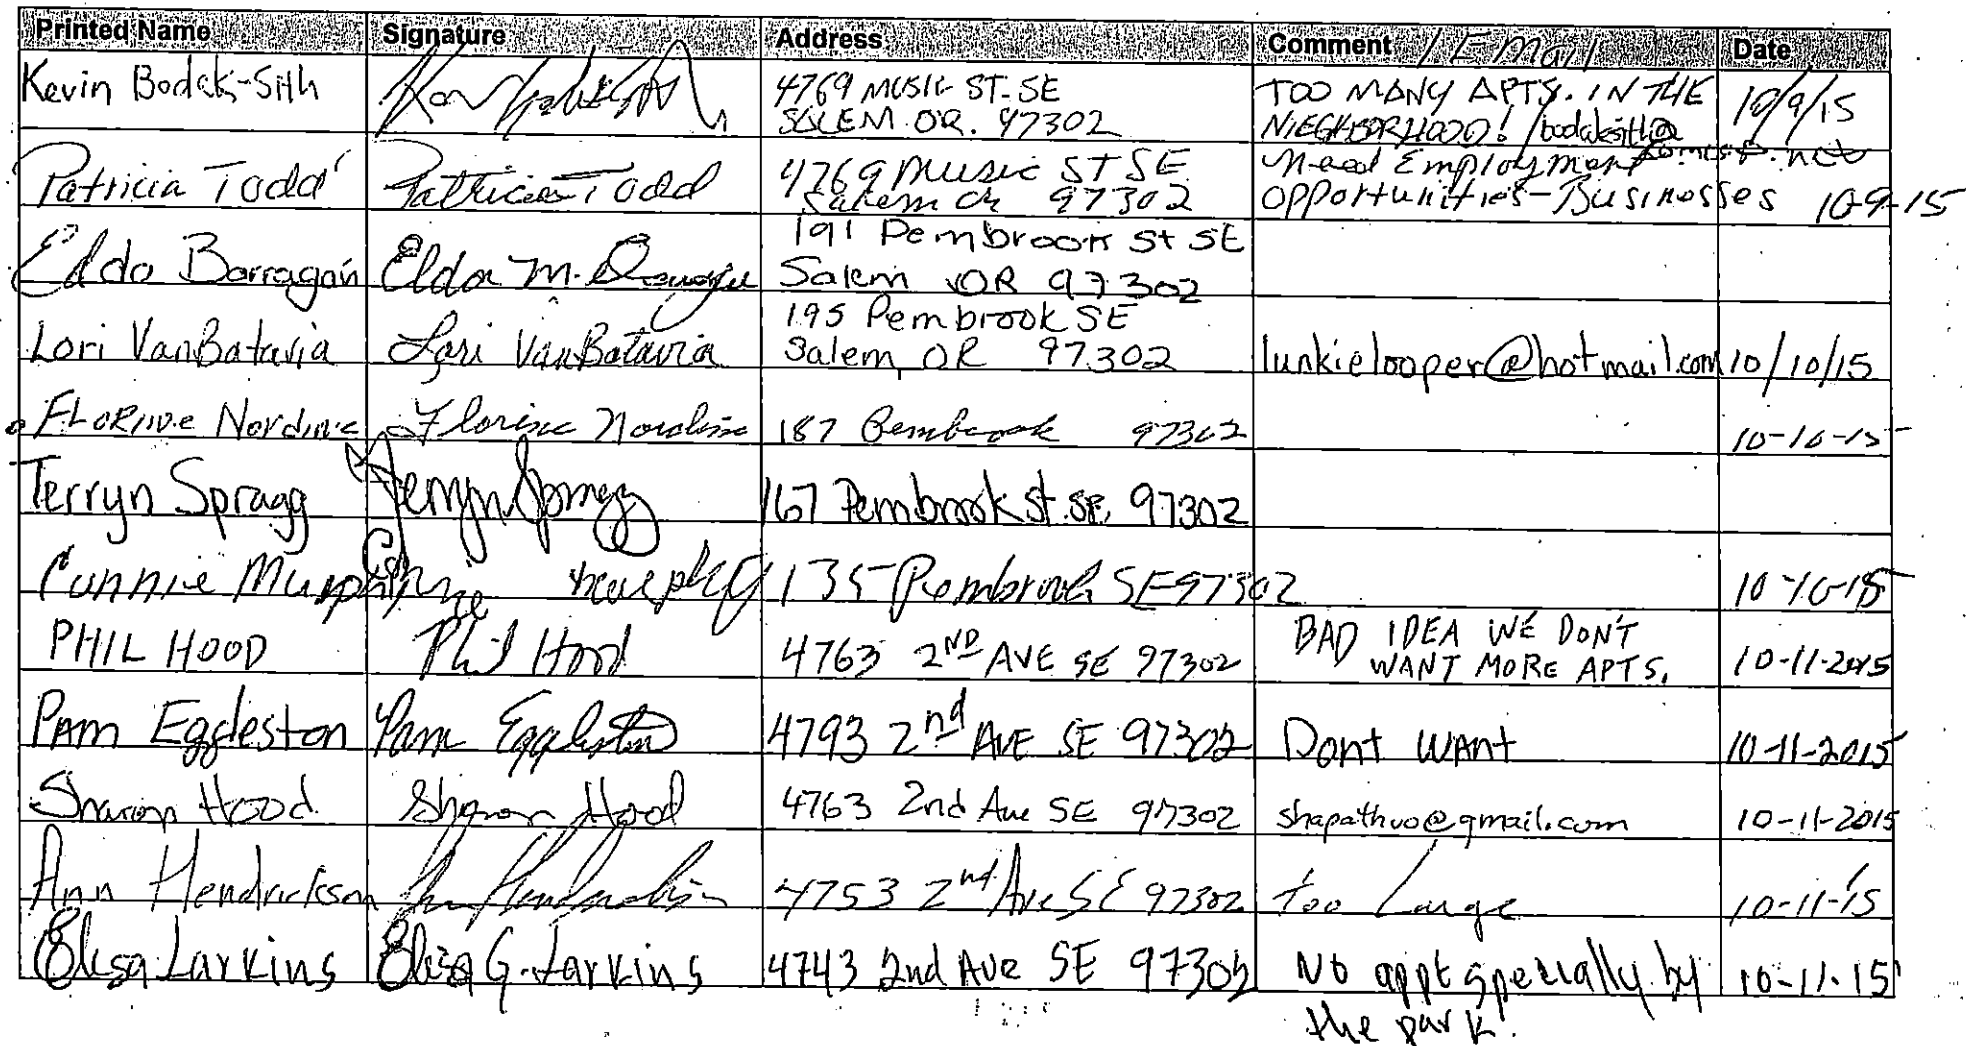 Printed Name Signature Address Comment / EMail Date
Kevin Bodak-Sith 4769 MUSIC ST. SE TOO MANY APTS. IN THE 10/9/15
SALEM OR. 97302 NIEGHBORHOOD! /bodaksith@
comcast.net
Patricia Todd Patricia Todd 4769 Music ST SE Need Employment
Salem Or 97302 opportunities-Businesses 10-9-15
Elda Barragán Elda M. 191 Pembrook St SE
Salem OR 97302
Lori VanBatavia Lori VanBatavia 195 Pembrook SE
Salem, OR 97302 lunkielooper@hotmail.com 10/10/15
FLORINE Nordine Florine Nordine 187 Pembrook 97302 10-10-15
Terryn Spragg Terryn Spragg 167 Pembrook St. SE, 97302
Connie Murphy Connie Murphy 135 Pembrook SE 97302 10-10-15
PHIL HOOD Phil Hood 4763 2ND AVE SE 97302 BAD IDEA WE DON'T
WANT MORE APTS. 10-11-2015
PAM Eggleston Pam Eggleston 4793 2nd AVE SE 97302 Dont WANt 10-11-2015
Sharon Hood Sharon Hood 4763 2nd Ave SE 97302 shapathuo@gmail.com 10-11-2015
Ann Hendrickson Ann Hendrickson 4753 2nd Ave SE 97302 too Large 10-11-15
Elisa Larkins Elisa G. Larkins 4743 2nd Ave SE 97302 No appt specially by 10-11-15
the park!